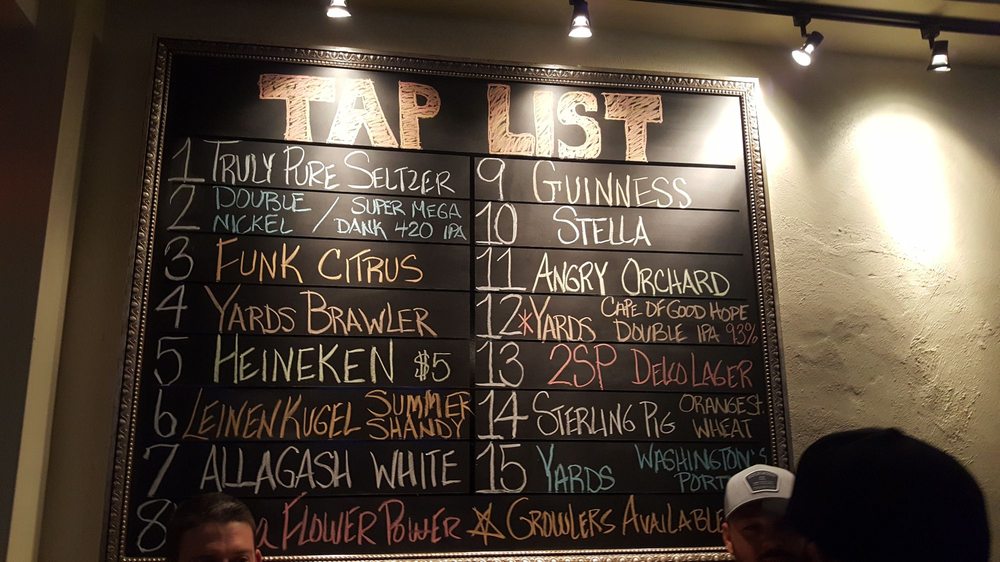 TAP LIST
1 TRULY PURE SELTZER
2 DOUBLE NICKEL / SUPER MEGA
DANK 420 IPA
3 FUNK CITRUS
4 YARDS BRAWLER
5 HEINEKEN $5
6 LEINENKUGEL SUMMER
SHANDY
7 ALLAGASH WHITE
8 FLOWER POWER
9 GUINNESS
10 STELLA
11 ANGRY ORCHARD
12 *YARDS CAPE OF GOOD HOPE
DOUBLE IPA 93%
13 2SP DELCO LAGER
14 STERLING PIG ORANGE ST.
WHEAT
15 YARDS WASHINGTON'S
☆ GROWLERS AVAILABLE